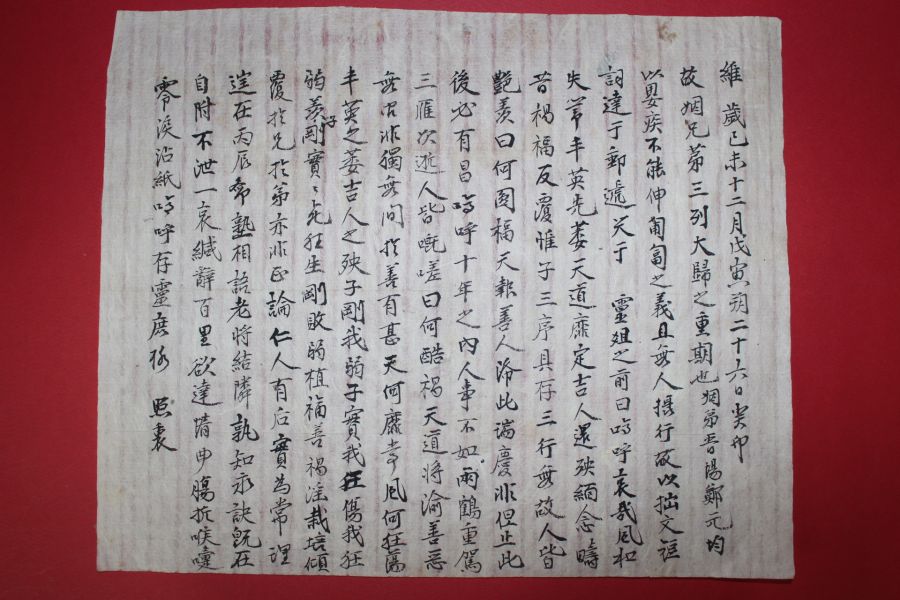 維 歲己未十二月戊寅朔二十六日癸卯
故姻兄第三列大歸之重期也姻弟晋陽鄭元均
以嬰疾不能伸匍匐之義且無人攝行故以拙文
詞達于郵遞哭于 靈姐之前曰嗚呼哀哉風和
失常丰英先萎天道靡定吉人還殃緬念疇
昔禍福反覆惟子三序具存三行無故人皆
艶羨曰何圖福天報善人滂此湍慶非但止此
後必有昌嗚呼十年之內人事不如兩鶴重駕
三雁次逝人皆嘅嗟曰何酷禍天道將渝善惡
無古非獨無間於善有甚天何靡常風何狂蕩
丰英之萎吉人之殃子剛我弱子實我狂傷我狂
弱羨子剛實實先狂生剛敗弱植福善禍淫栽培傾
覆於兄於弟亦非正論仁人有后實爲常理
逆在丙辰希塾相語老將結隣孰知永訣旣在
自附不泄一哀緘辭百里欲達情申膓抗喉嚏
零淚沾紙嗚呼存靈庶格 照衷